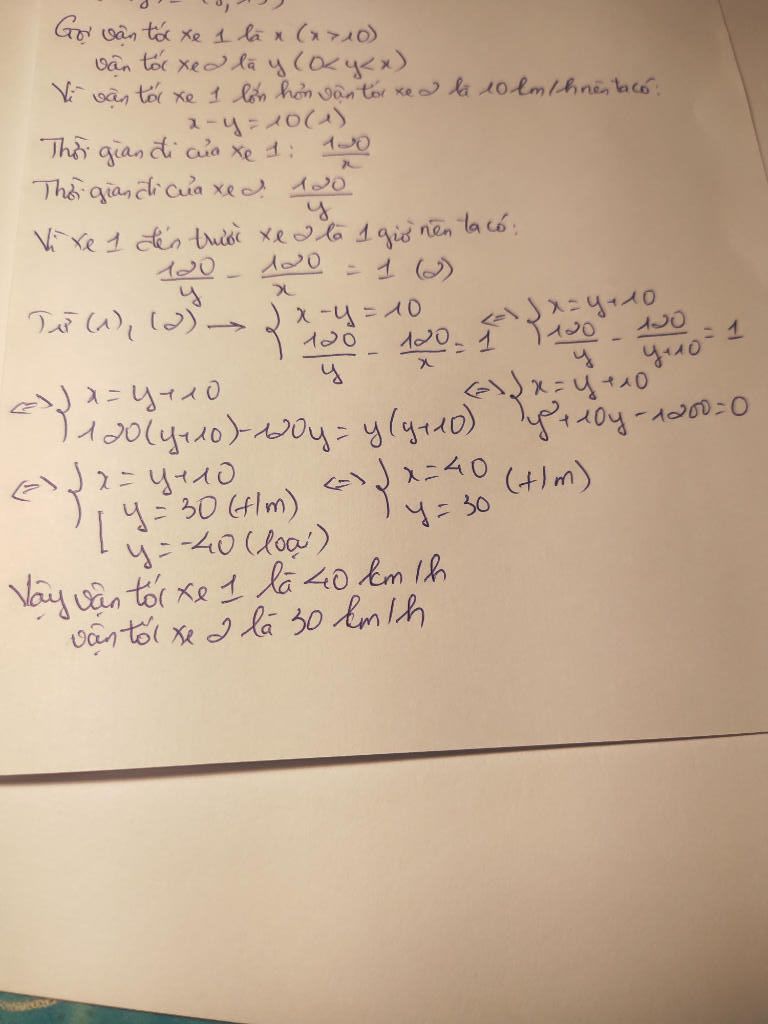 Gọi vận tốc xe 1 là x (x>10)
vận tốc xe 2 là y (0<y<x)
Vì vận tốc xe 1 lớn hơn vận tốc xe 2 là 10 km/h nên ta có:
x-y=10(1)
Thời gian đi của xe 1: 120/x
Thời gian đi của xe 2: 120/y
Vì xe 1 đến trước xe 2 là 1 giờ nên ta có:
120/y - 120/x = 1 (2)
Từ (1), (2) → { x-y=10 ; 120/y - 120/x = 1 <=> { x=y+10 ; 120/y - 120/y+10 = 1
<=> { x=y+10 ; 120(y+10)-120y=y(y+10) <=> { x=y+10 ; y²+10y-1200=0
<=> { x=y+10 ; [ y=30 (t/m) ; y=-40 (loại) <=> { x=40 ; y=30 (t/m)
Vậy vận tốc xe 1 là 40 km/h
vận tốc xe 2 là 30 km/h